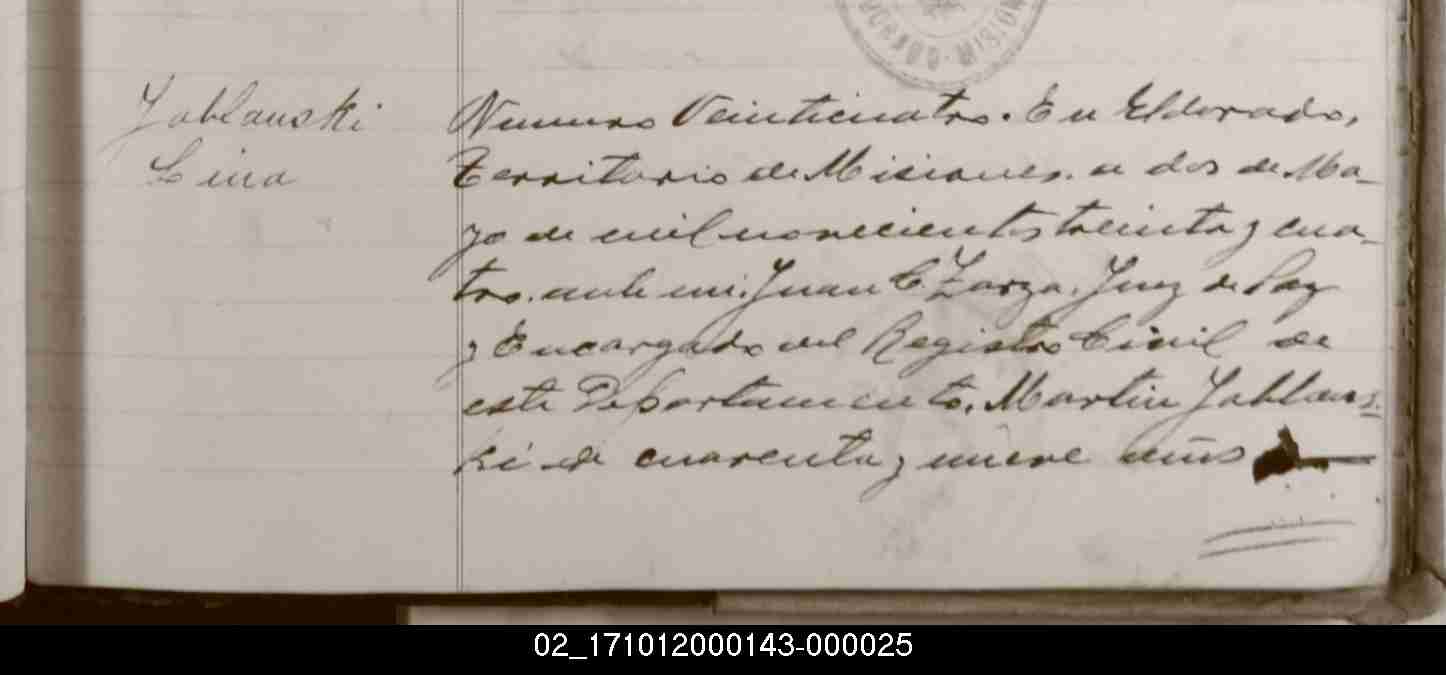 Jablanski
Lina
Numero Veinticuatro. En Eldorado,
Territorio de Misiones. a dos de Ma-
yo de mil novecientos treinta y cua-
tro. ante mi. Juan C. Zarza. Juez de Paz
y Encargado del Registro Civil de
este Departamento. Martin Jablans-
ki de cuarenta y nueve años
02_171012000143-000025